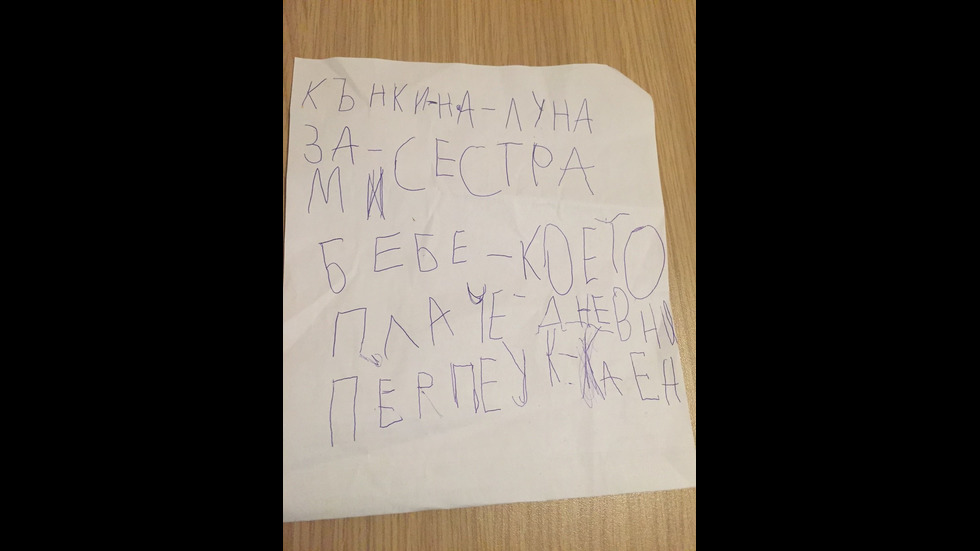 КЪНКИ-НА-ЛУНА
ЗА-СЕСТРА
МИ
БЕБЕ-КОЕТО
ПЛАЧЕ-ДНЕВНО
ПЕRПЕУК-КАЕН